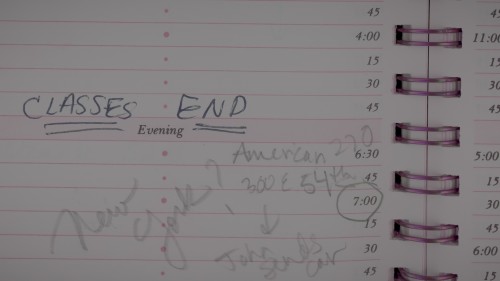 45
4:00 11:00
15 15
30 30
CLASSES END 45 45
Evening
American 220 6:30 5:00
300 E 54th 45 15
New York? 7:00 30
15 45
30 6:00
car 45 15